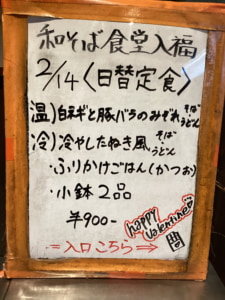 和そば食堂入福
2/14〈日替定食〉
温)白ネギと豚バラのみぞれそばうどん
冷)冷やしたぬき風そばうどん
・ふりかけごはん(かつお)
・小鉢2品
¥900-
happy Valentine
=入口こちら⇒